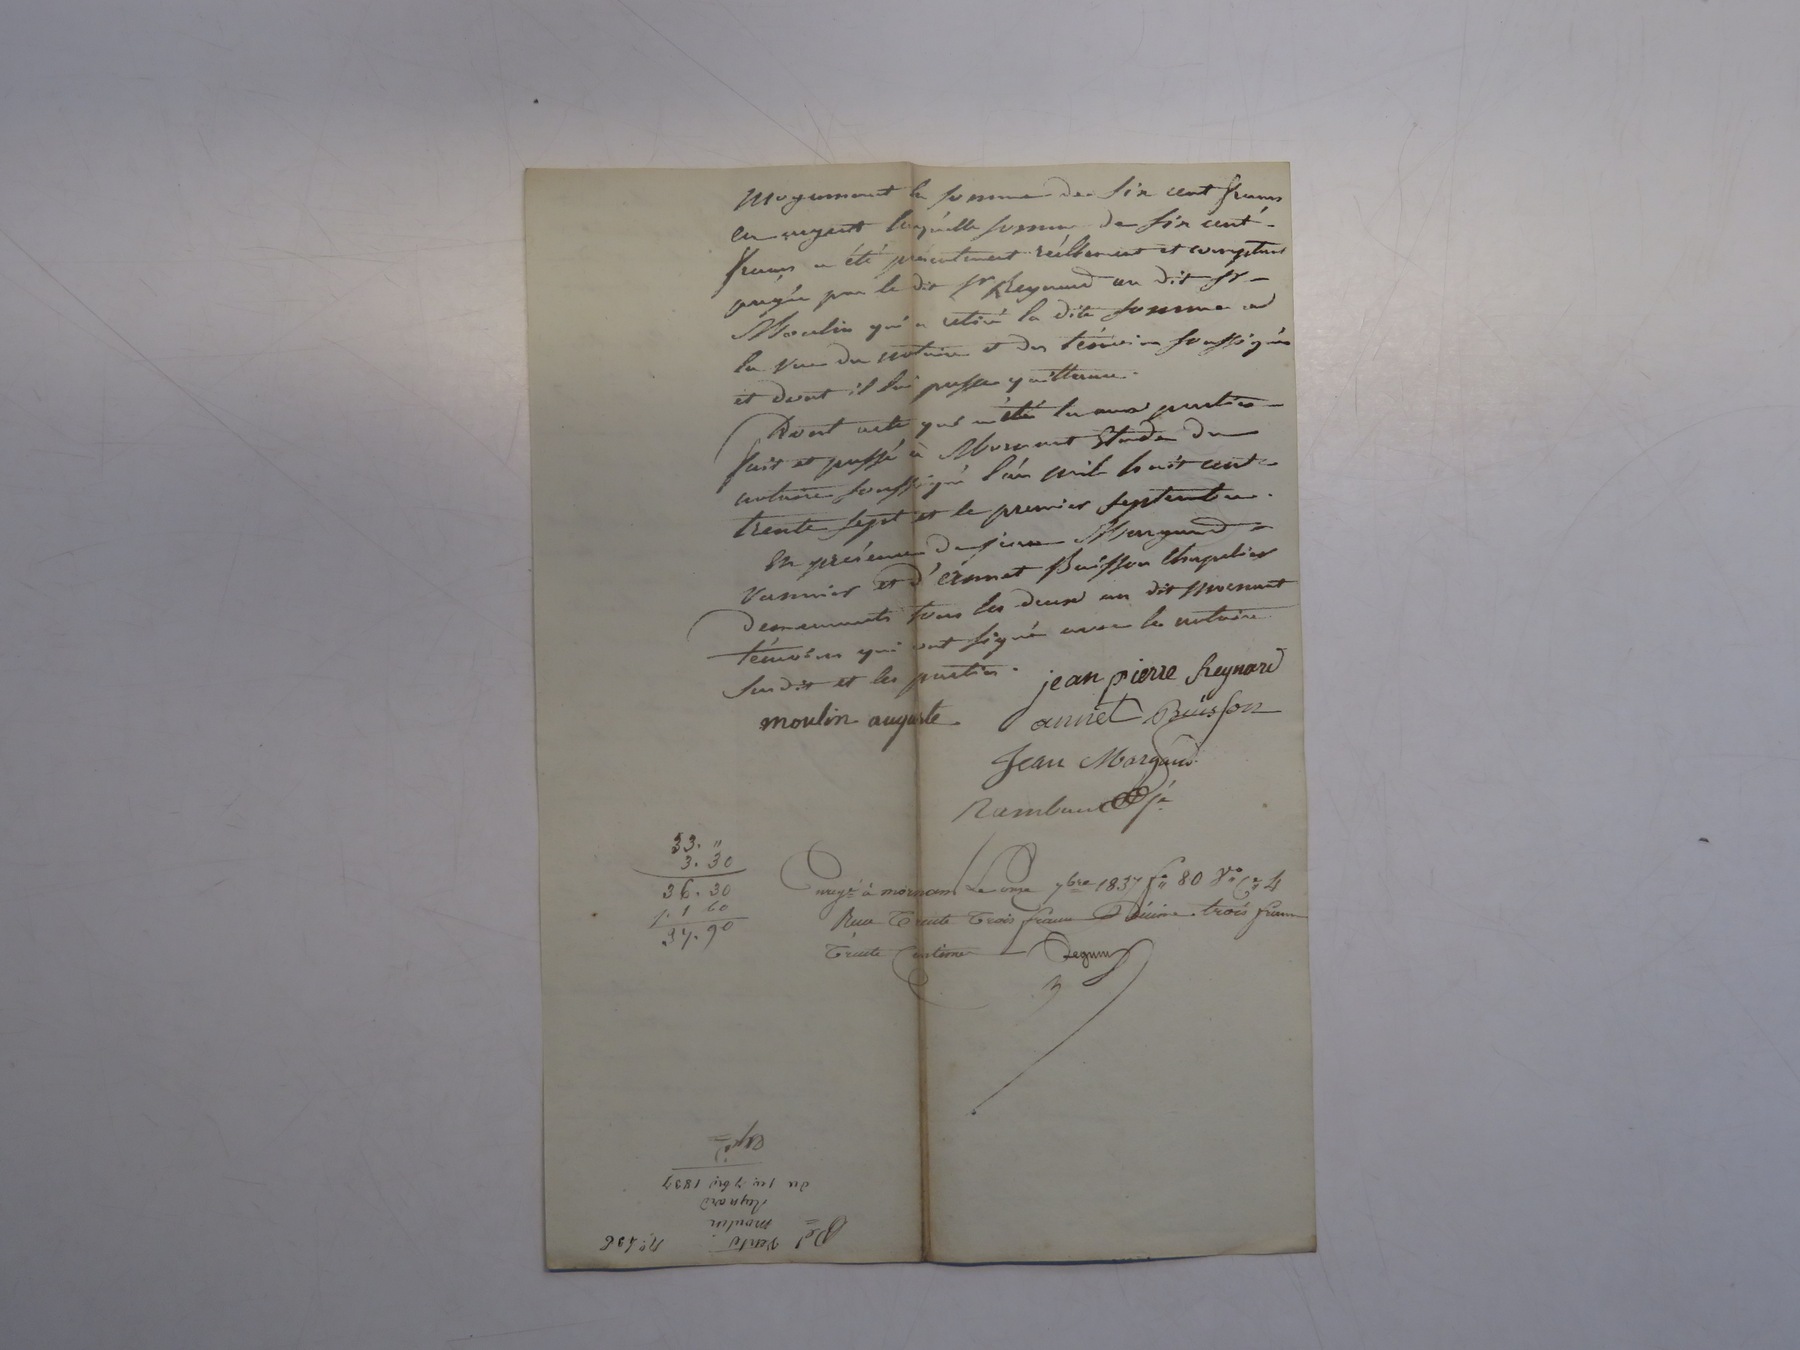 Moyennant la somme de six cent francs
en argent laquelle somme de six cent
francs a été présentement réellement et comptant
payée par le dit Sr Reynard au dit Sr
Moulin qui a retiré la dite somme a
la vue du notaire et des témoins soussignés
et dont il lui passe quittance.
Dont acte qui a été lu aux parties
fait et passé à Mornant Etude du
notaire soussigné l'an mil huit cent
trente sept et le premier septembre.
En présence de jean Margand
vannier et d'énnet Buisson chapelier
demeurants tous les deux au dit Mornant
témoins qui ont signé avec le notaire
susdit et les parties.
jean pierre Reynard
moulin auguste
annet Buisson
Jean Margand
Rambaud
33. "
3. 30
36. 30
1. 60
37. 90
à mornant Le onze 7bre 1837 fo 80 Vo Ce 4
Reçu Trente Trois francs Décime trois francs
Trente Centimes
No
Vente
Moulin
Reynard
du 1er 7bre 1837
Expd